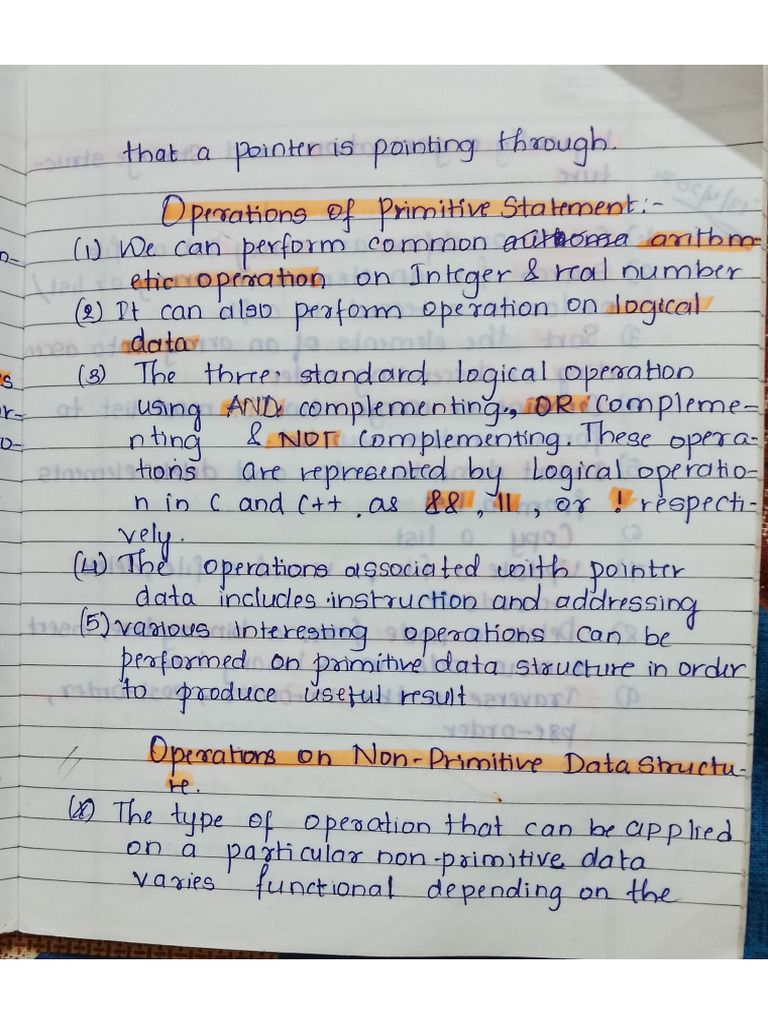 that a pointer is pointing through.
Operations of Primitive Statement:-
(1) We can perform common arithm-
etic operation on Integer & real number
(2) It can also perform operation on logical
data
(3) The three standard logical operation
using AND complementing, OR compleme-
nting & NOT complementing. These opera-
tions are represented by logical operatio-
n in C and C++ as &&, ||, or ! respecti-
vely.
(4) The operations associated with pointer
data includes instruction and addressing
(5) various interesting operations can be
performed on primitive data structure in order
to produce useful result
Operations on Non-Primitive Data Structu-
re.
The type of operation that can be applied
on a particular non-primitive data
varies functional depending on the